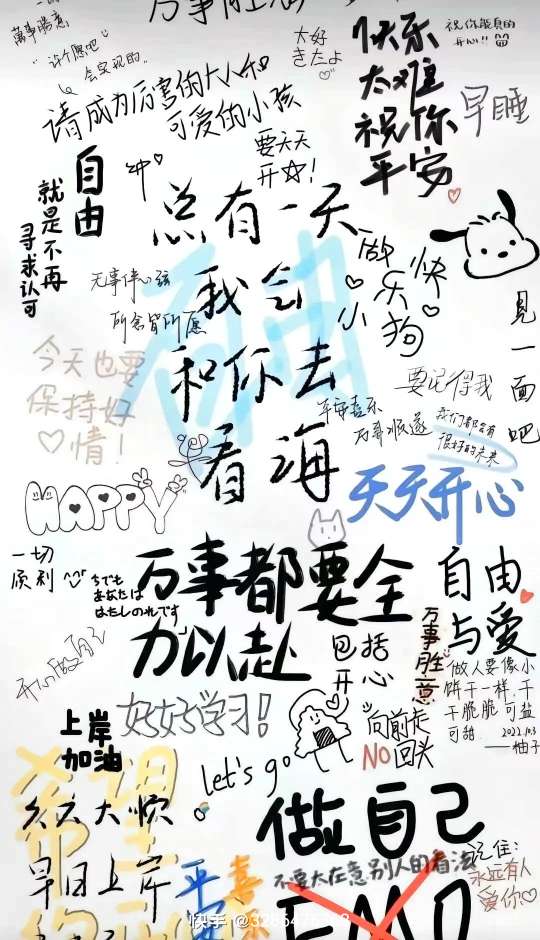 万事胜意
万事胜意
许个愿吧
会实现的..
请成为厉害的大人和
可爱的小孩
太好
きたよ
快乐
太难
祝你
平安
祝你能真的
开心!!
早睡
要天天
开☆!
自由
就是不再
寻求认可
冲
总有一天
我会
和你去
看海
自由
做
快
乐
小
狗
见一面吧
所念皆所愿
今天也要
保持好
心情!
要记得我
平安喜乐
万事顺遂
我们都会有
很好的未来
天天开心
HAPPY
一切
顺利
万事都要全
力以赴
自由
与爱
万事胜意
包括
开心
做人要像小
饼干一样,干
干脆脆,可盐
可甜.
2022.10.3
——柚子
好好学习!
上岸
加油
let's go
向前走
NO回头
希望
天天大顺
早日上岸
平安
喜
做自己
不要太在意别人的看法
EMO
记住:
永远有人
爱你♡
快手